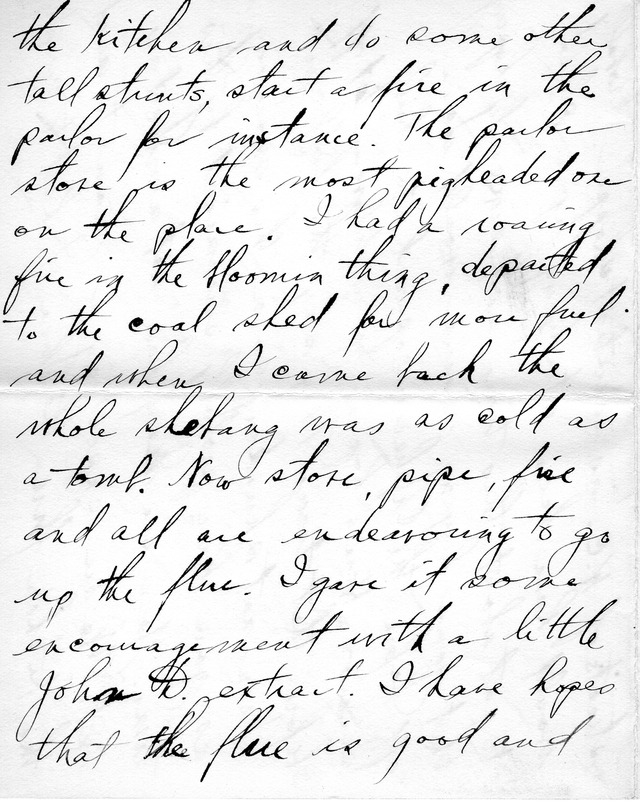 the kitchen and do some other
tall stunts, start a fire in the
parlor for instance. The parlor
stove is the most pigheaded one
on the place. I had a roaring
fire in the bloomin thing, departed
to the coal shed for more fuel
and when I came back the
whole shebang was as cold as
a tomb. Now stove, pipe, fire
and all are endeavoring to go
up the flue. I gave it some
encouragement with a little
John D. extract. I have hopes
that the flue is good and